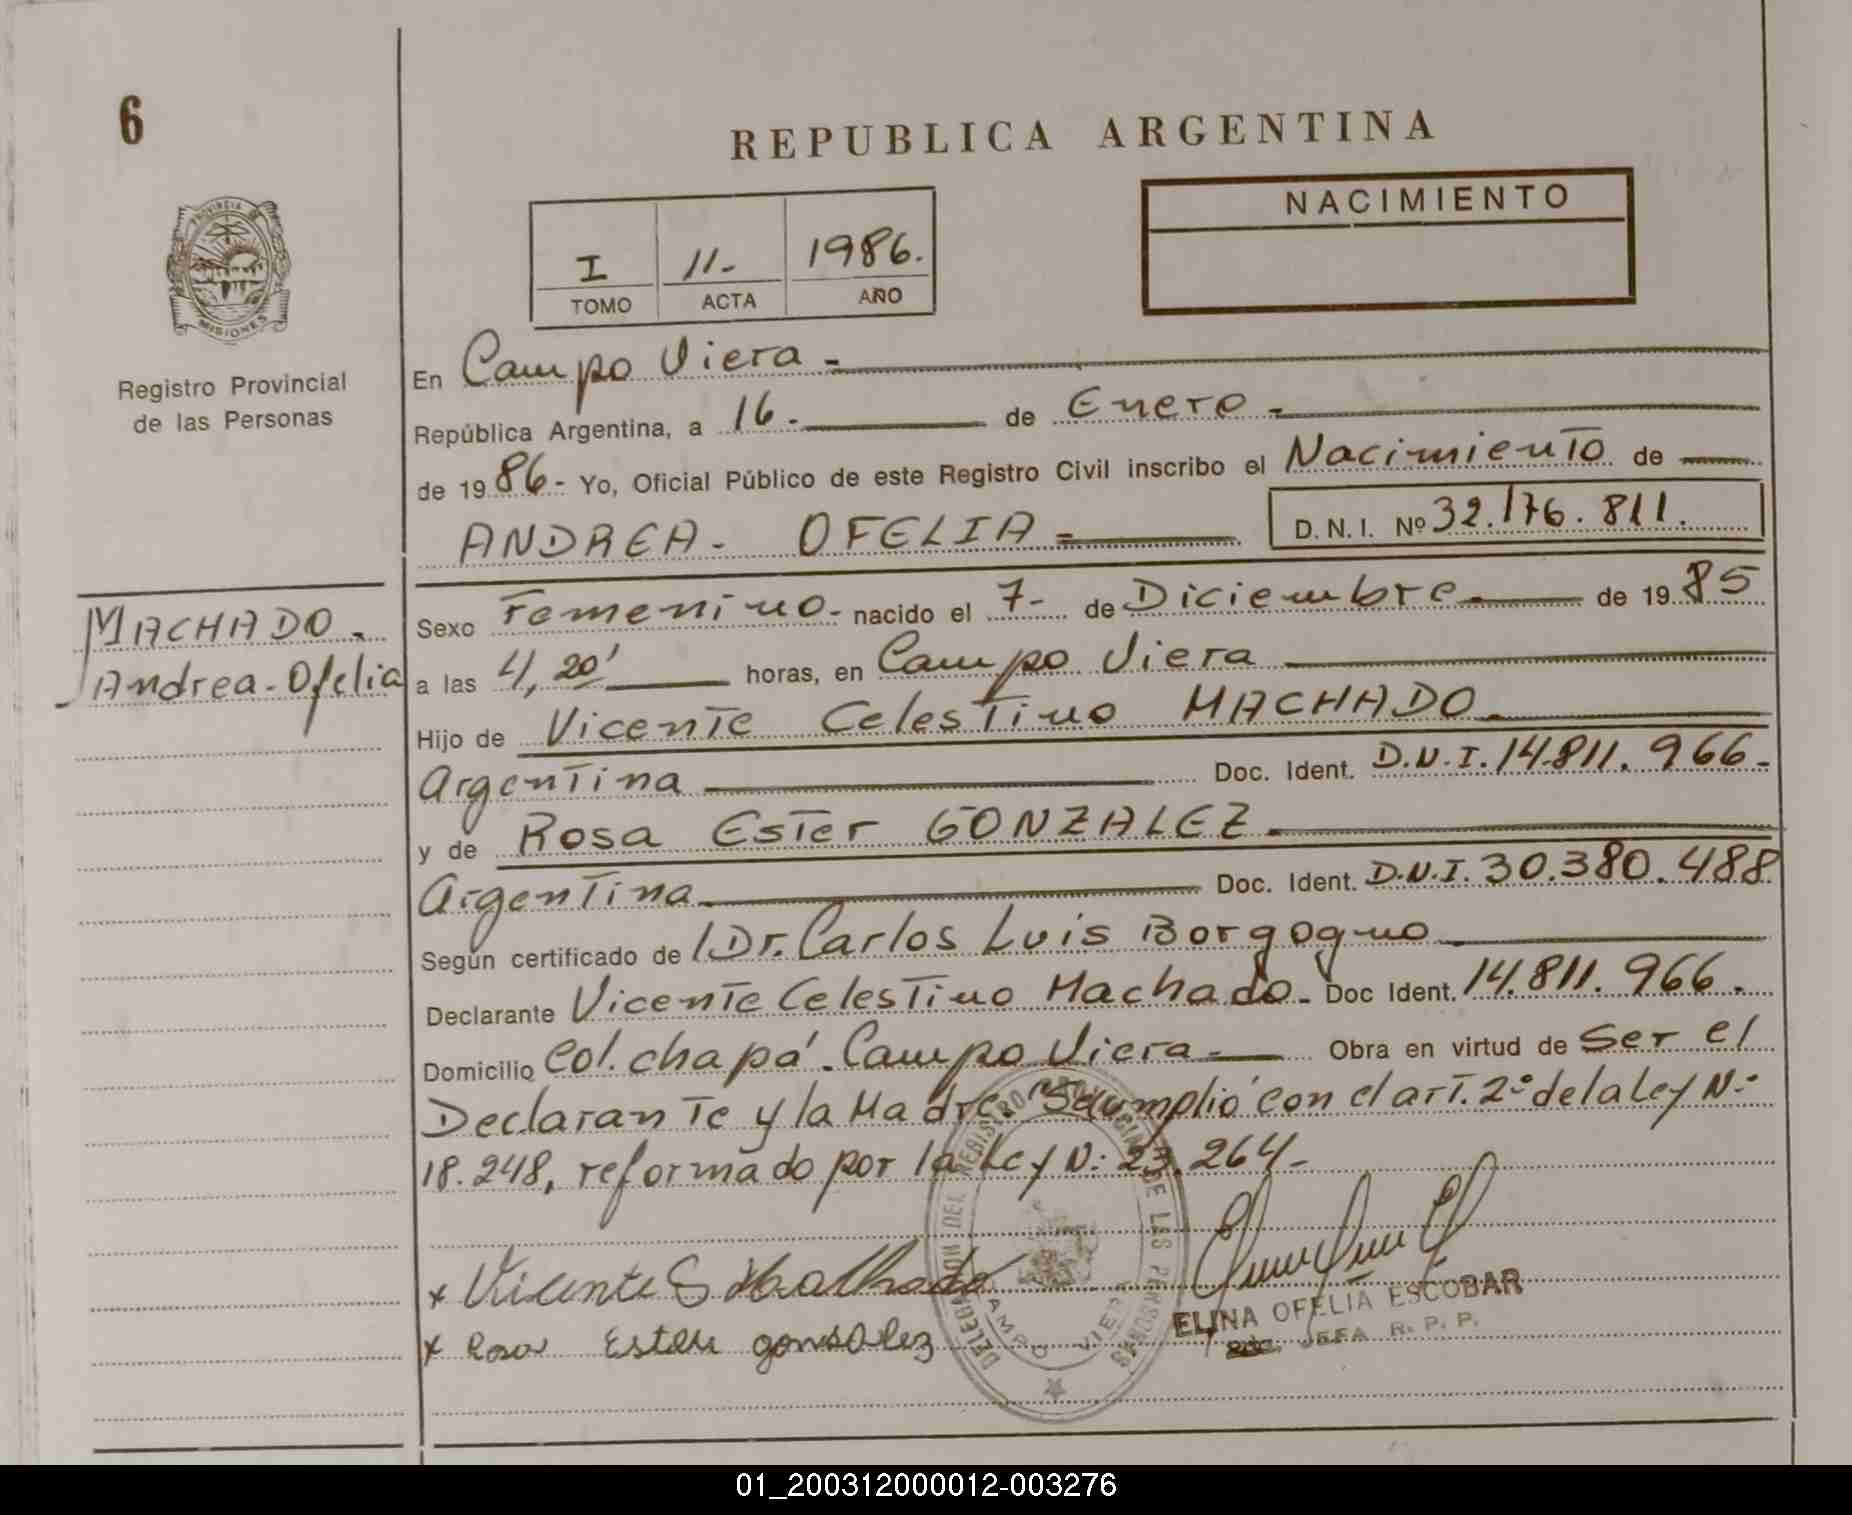 6
REPUBLICA ARGENTINA
NACIMIENTO
I 11- 1986.
TOMO ACTA AÑO
PROVINCIA DE
MISIONES
Registro Provincial
de las Personas
En Campo Viera -
República Argentina, a 16.- de Enero.-
de 1986- Yo, Oficial Público de este Registro Civil inscribo el Nacimiento de
ANDREA - OFELIA = D.N.I. Nº 32.176.811.
MACHADO.
Andrea-Ofelia
Sexo Femenino- nacido el 7- de Diciembre.- de 1985
a las 4,20' horas, en Campo Viera
Hijo de Vicente Celestino MACHADO.
Argentina Doc. Ident. D.N.I. 14.811.966-
y de Rosa Ester GONZALEZ.
Argentina. Doc. Ident. D.N.I. 30.380.488
Según certificado de /Dr. Carlos Luis Borgogno
Declarante Vicente Celestino Machado- Doc Ident. 14.811.966.
Domicilio Col. chapá. Campo Viera- Obra en virtud de Ser el
Declarante y la Madre. Se cumplió con el art. 2º de la Ley N:
18.248, reformado por la Ley N: 23.264-
x Vicente C Machado
x Rosa Ester gonsalez
DELEGACION DEL REGISTRO PROVINCIAL DE LAS PERSONAS
CAMPO VIERA
ELINA OFELIA ESCOBAR
JEFA R. P. P.
01_200312000012-003276